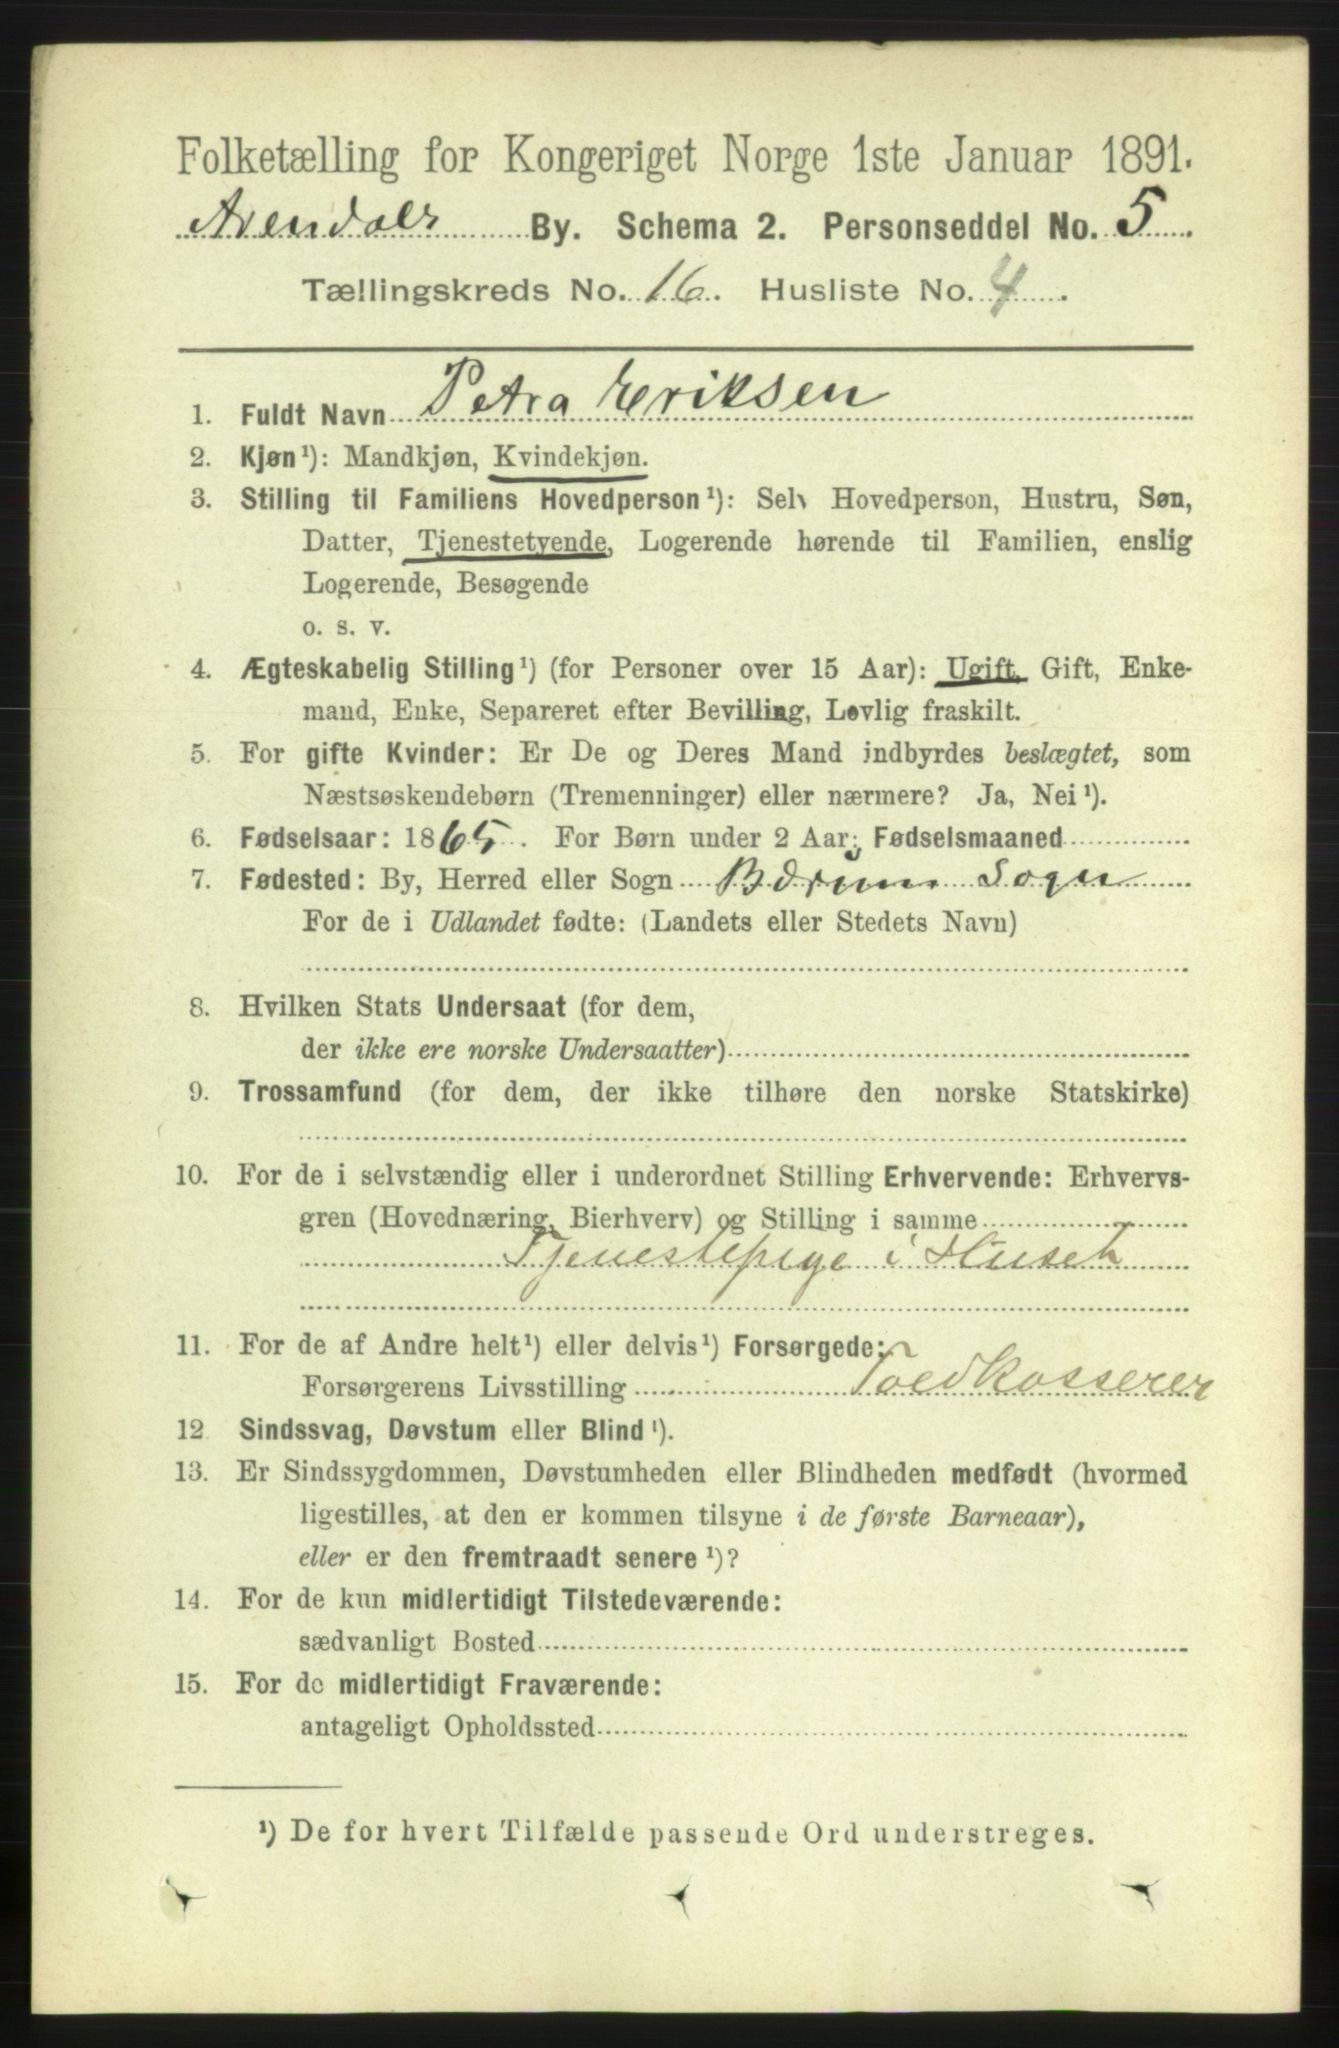 Folketælling for Kongeriget Norge 1ste Januar 1891.
Arendals By. Schema 2. Personseddel No. 5
Tællingskreds No. 16. Husliste No. 4
1. Fuldt Navn Petra Eriksen
2. Kjøn¹): Mandkjøn, Kvindekjøn.
3. Stilling til Familiens Hovedperson¹): Selv Hovedperson, Hustru, Søn,
Datter, Tjenestetyende, Logerende hørende til Familien, enslig
Logerende, Besøgende
o. s. v.
4. Ægteskabelig Stilling¹) (for Personer over 15 Aar): Ugift, Gift, Enke-
mand, Enke, Separeret efter Bevilling, Lovlig fraskilt.
5. For gifte Kvinder: Er De og Deres Mand indbyrdes beslægtet, som
Næstsøskendebørn (Tremenninger) eller nærmere? Ja, Nei¹).
6. Fødselsaar: 1865. For Børn under 2 Aar: Fødselsmaaned
7. Fødested: By, Herred eller Sogn Bærum Sogn
For de i Udlandet fødte: (Landets eller Stedets Navn)
8. Hvilken Stats Undersaat (for dem,
der ikke ere norske Undersaatter)
9. Trossamfund (for dem, der ikke tilhøre den norske Statskirke)
10. For de i selvstændig eller i underordnet Stilling Erhvervende: Erhvervs-
gren (Hovednæring, Bierhverv) og Stilling i samme
Tjenestepige i Huset
11. For de af Andre helt¹) eller delvis¹) Forsørgede:
Forsørgerens Livsstilling Toldkasserer
12 Sindssvag, Døvstum eller Blind¹).
13. Er Sindssygdommen, Døvstumheden eller Blindheden medfødt (hvormed
ligestilles, at den er kommen tilsyne i de første Barneaar),
eller er den fremtraadt senere¹)?
14. For de kun midlertidigt Tilstedeværende:
sædvanligt Bosted
15. For de midlertidigt Fraværende:
antageligt Opholdssted
¹) De for hvert Tilfælde passende Ord understreges.